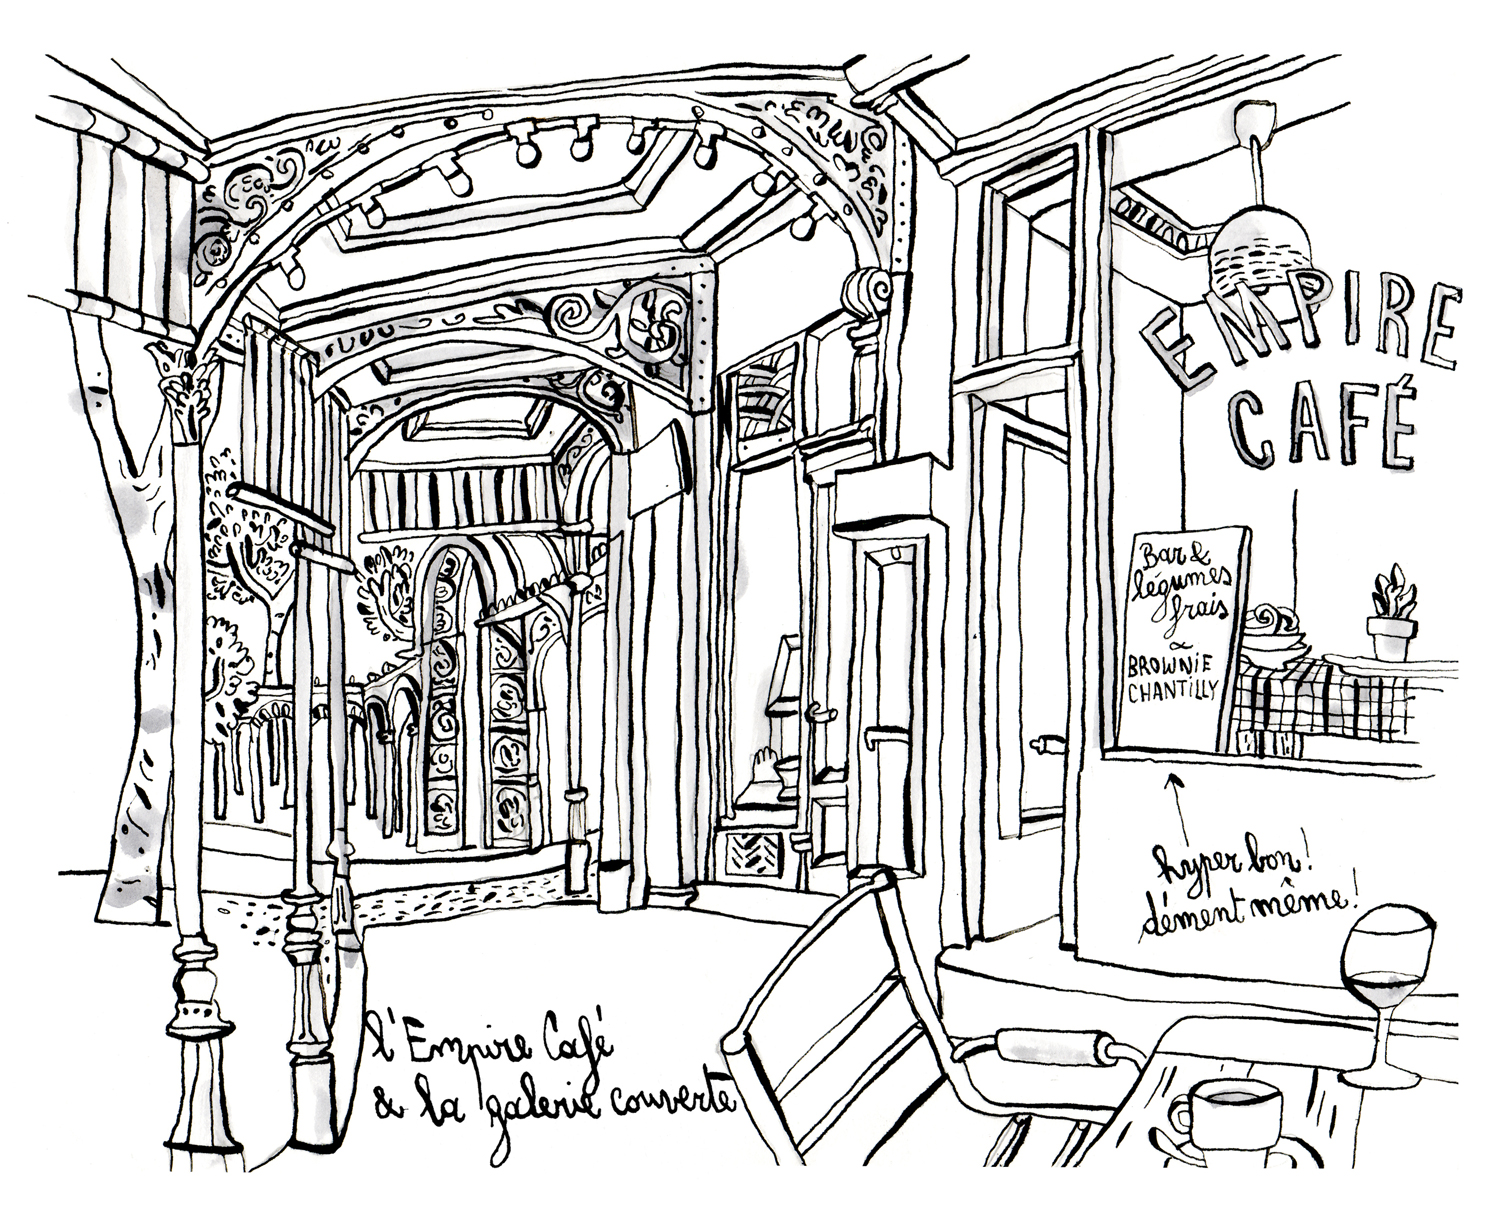 EMPIRE
CAFÉ
Bar &
légumes
frais
~
BROWNIE
CHANTILLY
hyper bon!
dément même!
l'Empire Café
& la galerie couverte